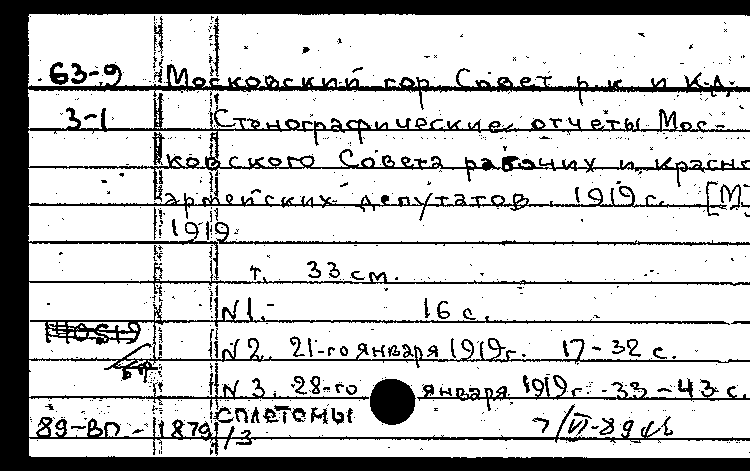 63-9 Московский гор. Совет р.к. и К.Д.
3-1 Стенографические отчеты Мос-
ковского Совета рабочих и красно
армейских депутатов. 1919 г. [М.
1919
т. 33 см.
N 1.- 16 с.
N 2. 21-го января 1919г. 17-32 с.
N 3. 28-го января 1919г. 33-43 с.
сплетомы
89-ВП-1879/3 7/VI-89